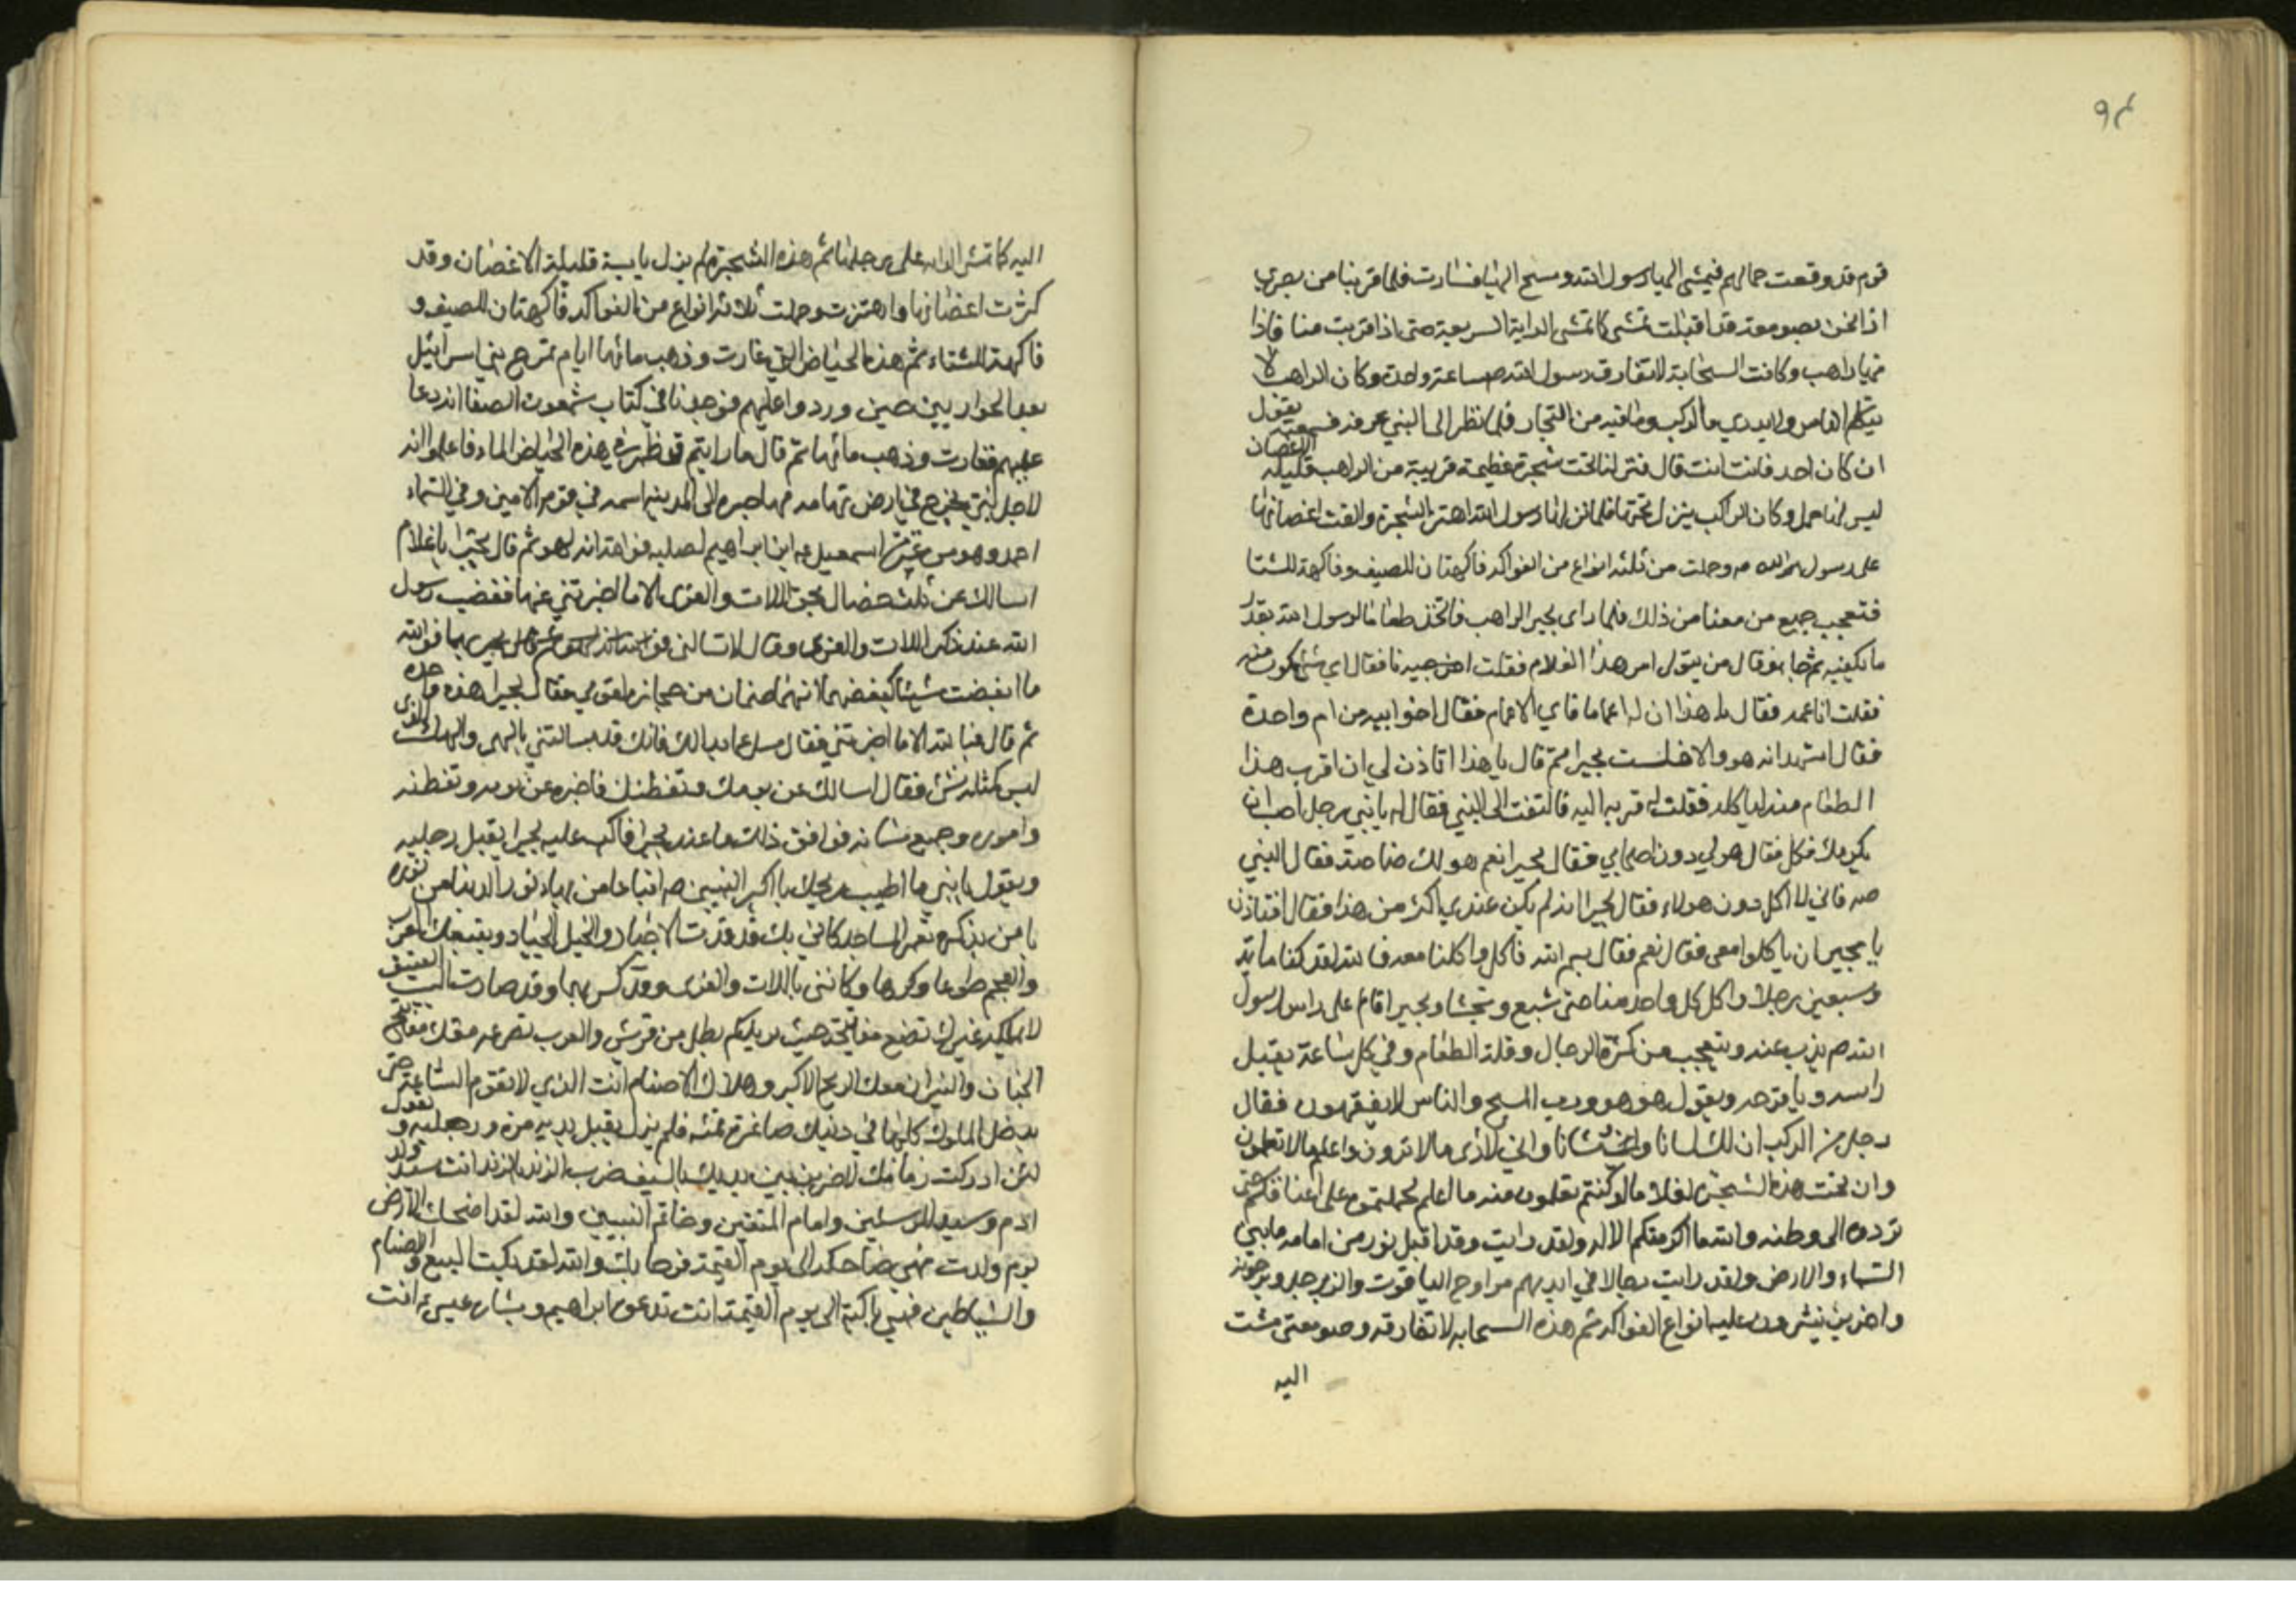 ٩٤
قوم قد وقعت جمالهم فيمشى اليها رسول الله ومسح اليها فسارت فلما قربنا من بصرى
اذا نحن بصومعة قد اقبلت تمشى كما تمشى الدابة السريعة حتى اذا قربت منا فاذا
فيها راهب وكانت السحابة لا تفارق رسول الله ص ساعة واحدة وكان الراهب لا
يتكلم الناس ولا يدري ما الركب وما فيه من التجار فلما نظر الى النبي عرفه فسمعته يقول
ان كان احد فانت انت قال فنزلنا تحت شجرة عظيمة قريبة من الراهب قليلة الاغصان
ليس لها حمل وكان الركب ينزل تحتها فلما نزلها رسول الله اهتز الشجرة والقت اغصانها
على رسول الله ص وحملت من ثلثة انواع من الفواكه فاكهتان للصيف وفاكهة للشتا
فتعجب جميع من معنا من ذلك فلما راى بحيرا الراهب فاتخذ طعاما لرسول الله بقدر
ما يكفيه ثم جا بنو قال من يتولى امر هذا الغلام فقلت انا فقال اي شئ تكون منه
فقلت انا عمه فقال يا هذا ان له اعماما فاي الاعمام فقال اخو ابيه من ام واحدة
فقال اشهد انه هو والا فلست بحيرا ثم قال يا هذا اتاذن لي ان اقرب هذا
الطعام منه لياكله فقلت له قربه اليه فالتفت الى النبي فقال له يا بني رجل احب ان
يكرمك فكل فقال هو لي دون اصحابي فقال بحيرا نعم هو لك خاصة فقال النبي
ص فاني لا اكل دون هولاء فقال بحيرا انه لم يكن عندي اكثر من هذا فقال افتاذن
يا بحيرا ان ياكلوا معى فقال نعم فقال بسم الله فاكل واكلنا معه فوالله لقد كنا ماية
وسبعين رجلا واكل كل واحد منا حتى شبع وتجشا وبحيرا قام على راس رسول
الله ص يذب عنه ويتعجب من كثرة الرجال وقلة الطعام وفي كل ساعة يقبل
راسه ويافوخه ويقول هو هو ورب المسيح والناس لا يفقهون فقال
رجل من الركب ان لك لشانا واني لارى ما لا ترون واعلم ما لا تعلمون
وان تحت هذه الشجرة لغلاما لو كنتم تعلمون منه ما اعلم لحملتموه على اعناقكم حتى
تردوه الى وطنه والله ما اكرمتكم الا له ولقد رايت وقد اقبل نور من امامه ما بين
السماء والارض ولقد رايت رجالا في ايديهم مراوح الياقوت والزبرجد يروحونه
واخرين ينثرون عليه انواع الفواكه ثم هذه السحابة لا تفارقه وصومعتى مشت
اليه
اليه كما تمشى الدابة على رجلها ثم هذه الشجرة لم يزل يابسة قليلة الاغصان وقد
كثرت اغصانها واهتزت وحملت ثلاثة انواع من الفواكه فاكهتان للصيف و
فاكهة للشتاء ثم هذه الحياض التي غارت وذهب مائها ايام تمرج بني اسرائيل
بعد الحواريين حين وردوا عليهم فوجدنا في كتاب شمعون الصفا انه دعا
عليهم فغارت وذهب مائها ثم قال ما رايتم قد ظهر في هذه الحياض الماء فاعلموا انه
لاجل نبي يخرج في ارض تهامه مهاجره الى المدينه اسمه في قومه الامين وفي السماء
احمد وهو من عترة اسمعيل بن ابراهيم لصلبه فوالله انه لهو ثم قال بحيرا يا غلام
اسالك عن ثلث خصال بحق اللات والعزى الا ما اخبرتني عنها فغضب رسول
الله عند ذكر اللات والعزى وقال لا تسالني بهما فوالله
ما ابغضت شيئا كبغضهما انهما صنمان من حجارة لقومي فقال بحيرا هذه واحدة
ثم قال فبالله الا ما اخبرتني فقال سل عما بدا لك فانك قد سالتني بالهي والهك الذي
ليس كمثله شئ فقال اسالك عن نومك ويقظتك فاخبره عن نومه ويقظته
واموره وجميع شانه فوافق ذلك ما عند بحيرا فاكب عليه بحيرا يقبل رجليه
ويقول يا بني ما اطيب ريحك يا اكبر النبيين ص اتباعا من بهاء نور الدنيا من نوره
يا من بذكره تعمر المساجد كاني بك قد قدت الاجناد والخيل الجياد ويتبعك العرب
والعجم طوعا وكرها وكانني باللات والعزى وقد كسرتها وقد صارت البيت العتيق
لا يملكه غيرك تضع مفاتيحه حيث تريد كم بطل من قريش والعرب تصرعه معك مفاتيح
الجنان والنيران معك الذبح الاكبر وهلاك الاصنام انت الذي لا تقوم الساعة حتى
يدخل الملوك كلها في دينك صاغرة قمئة فلم يزل يقبل يديه مرة ورجليه ويقول
لئن ادركت زمانك لاضربن بين يديك بالسيف ضرب الزند بالزند انت سيد ولد
ادم وسيد المرسلين وامام المتقين وخاتم النبيين والله لقد اضحكت الارض
يوم ولدت فهي ضاحكه الى يوم القيمة فرحا بك والله لقد بكيت البيع والاصنام
والشياطين فهي باكية الى يوم القيمة انت دعوة ابراهيم وبشارة عيسى انت